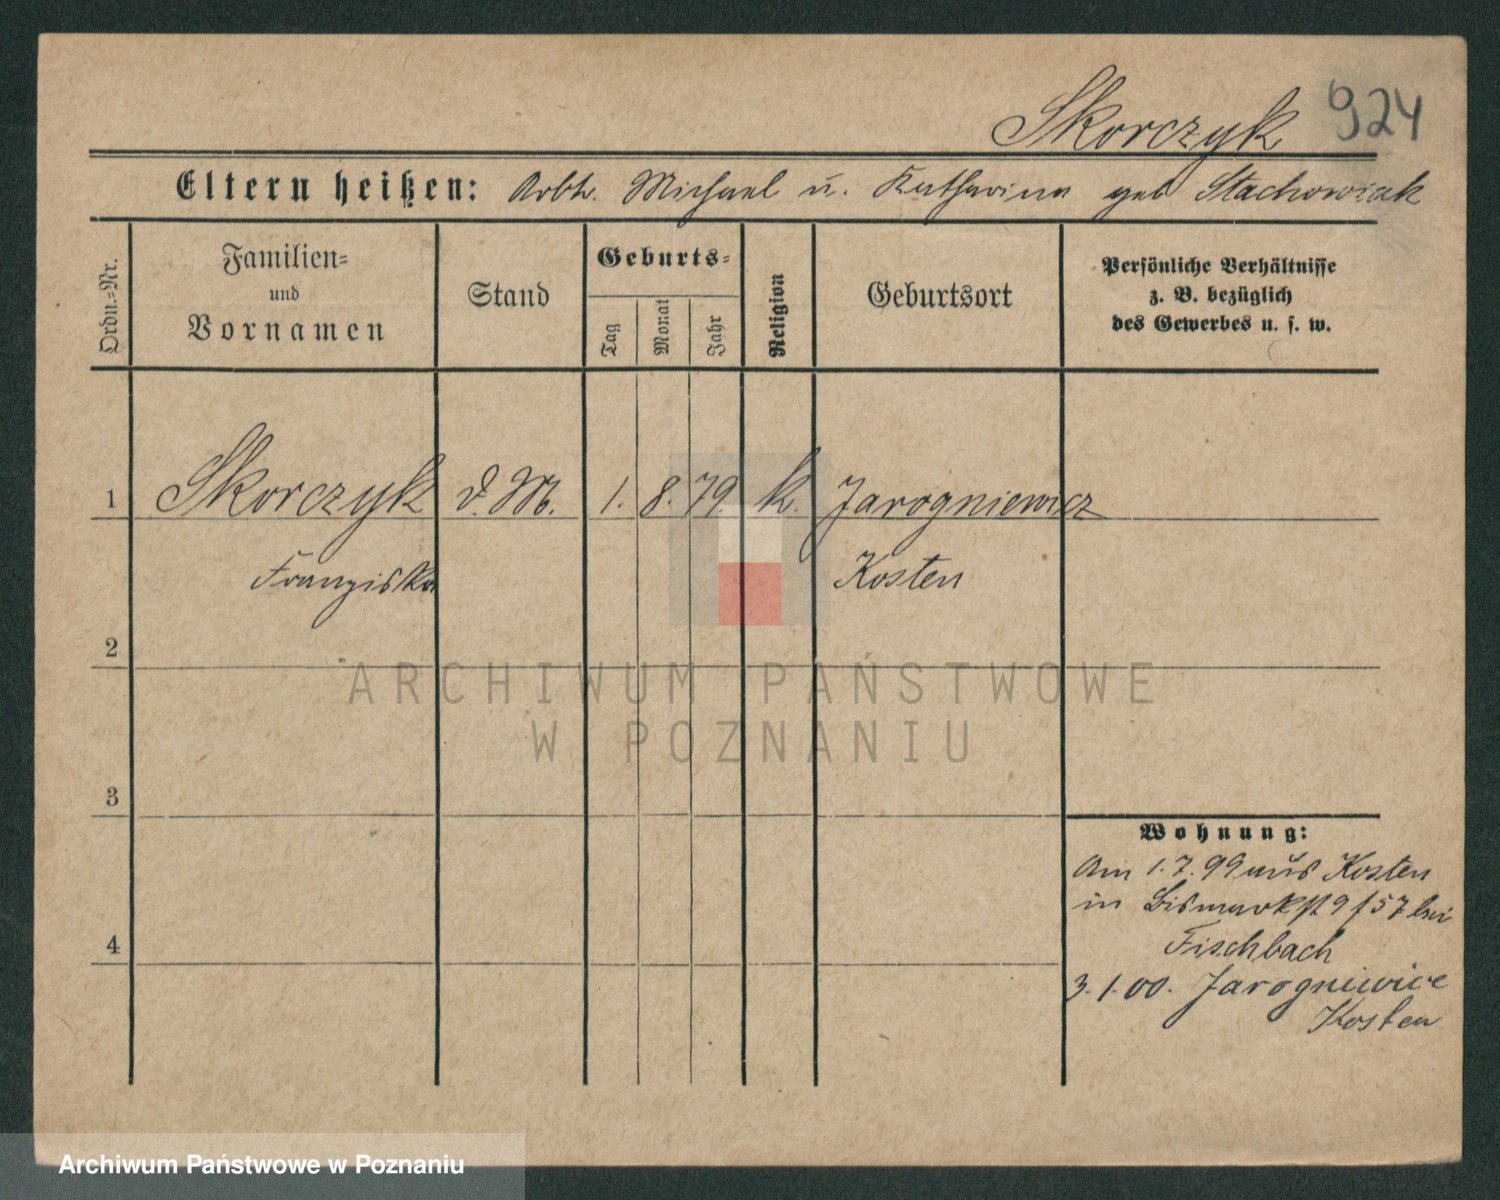 Skorczyk 924
Eltern heißen: Arbtr. Michael u. Katharina geb Stachowiak
Ordn.=Nr.
Familien=
und
Vornamen
Stand
Geburts=
Tag
Monat
Jahr
Religion
Geburtsort
Persönliche Verhältnisse
z. B. bezüglich
des Gewerbes u. s. w.
1 Skorczyk d. M. 1. 8. 79. k. Jarogniewicz
Franziska Kosten
2
3
4
Wohnung:
Am 1.7.99 aus Kosten
in Bismarkst 9 f 57 bei
Fischbach
3.1.00. Jarogniewice
Kosten
ARCHIWUM PAŃSTWOWE
W POZNANIU
Archiwum Państwowe w Poznaniu